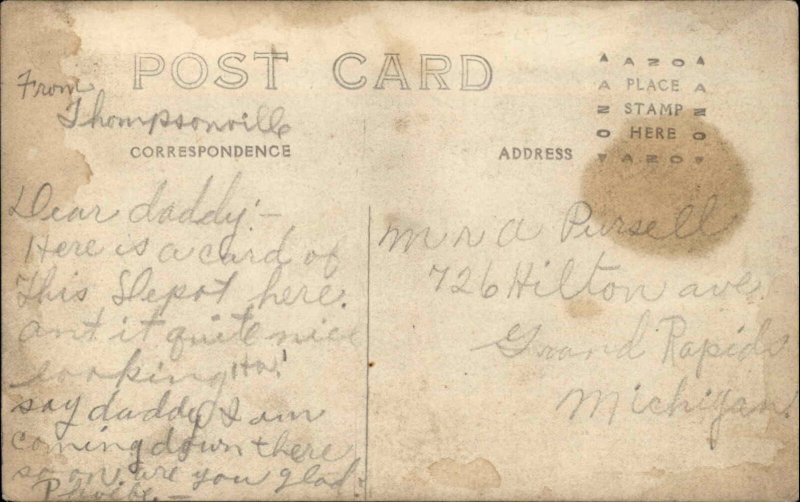 POST CARD
From
Thompsonville
CORRESPONDENCE
Dear daddy:-
Here is a card of
this Depot here.
ant it quite nice
looking Ha!
say daddy I am
coming down there
so on. are you glad.
Phoebe.-
AZO
PLACE
STAMP
HERE
AZO
ADDRESS
Mr A Pursell
726 Hilton ave
Grand Rapids
Michigan.